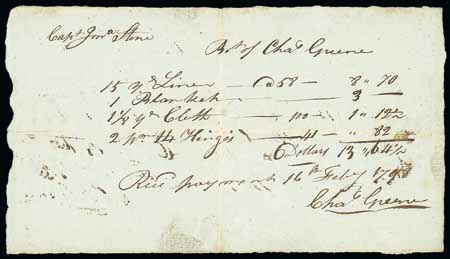 Capt Jona Stone
Bot of Chas Greene
15 yds Linen — @58 — 8 " 70
1 Blanket — 3 —
1⅛ yds Cloth — 100 — 1 " 12½
2 pr H Hinges — 41 — " 82
Dollars 13 " 64½
Recd payment 16th Feby
Chas Greene